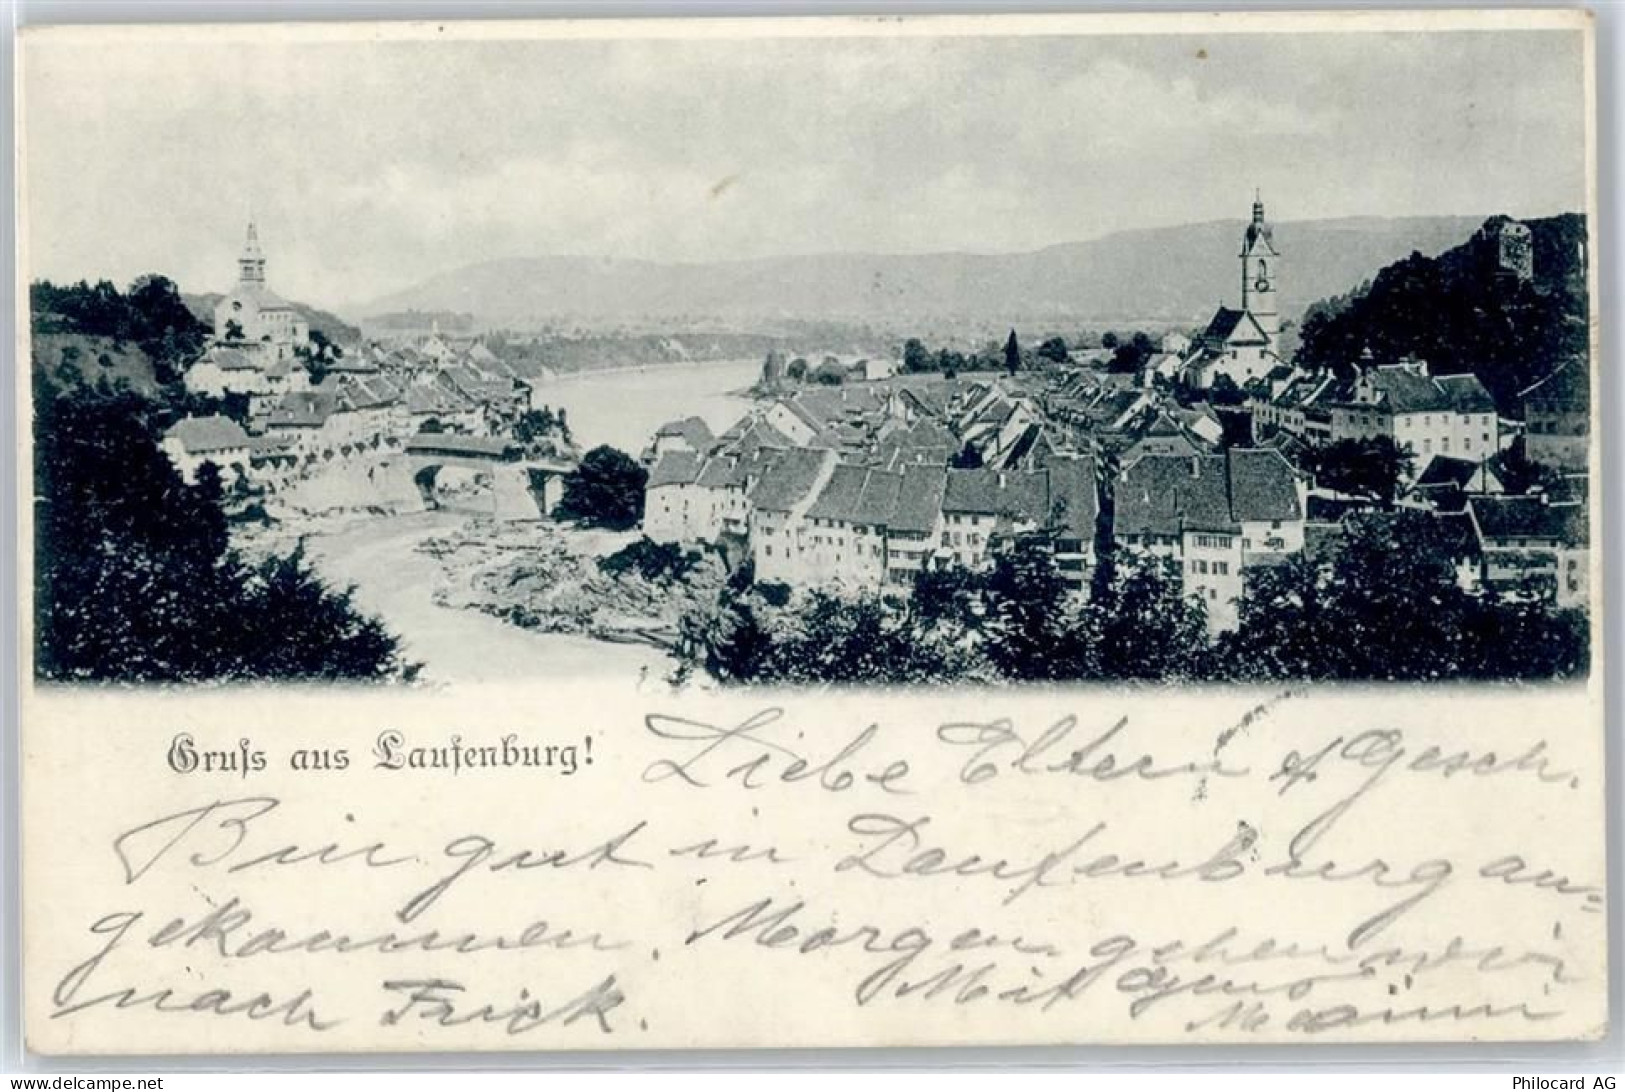 Gruss aus Laufenburg!
Liebe Eltern & Gesch.
Bin gut in Laufenburg an-
gekommen. Morgen gehen wir
nach Frick. Mit Gruss
www.delcampe.net
philocard
Philocard AG